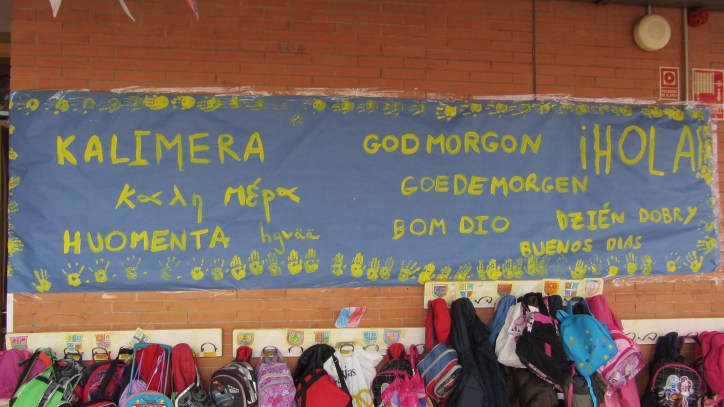 KALIMERA
Καλη μέρα
HUOMENTA hyvää
GODMORGON
GOEDEMORGEN
BOM DIO
¡HOLA!
DZIÉN DOBRY
BUENOS DIAS